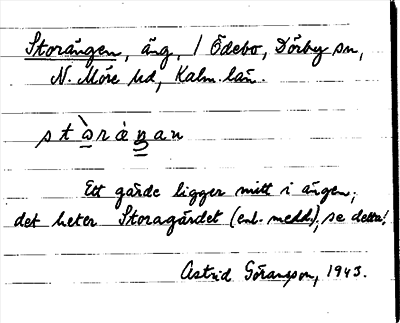 Storängen, äng, / Ödebo, Dörby sn,
N. Möre hd, Kalm. län.
stòràŋan
Ett gärde ligger mitt i ängen;
det heter Storagärdet (enl. medd.), se detta!
Astrid Göransson, 1943.